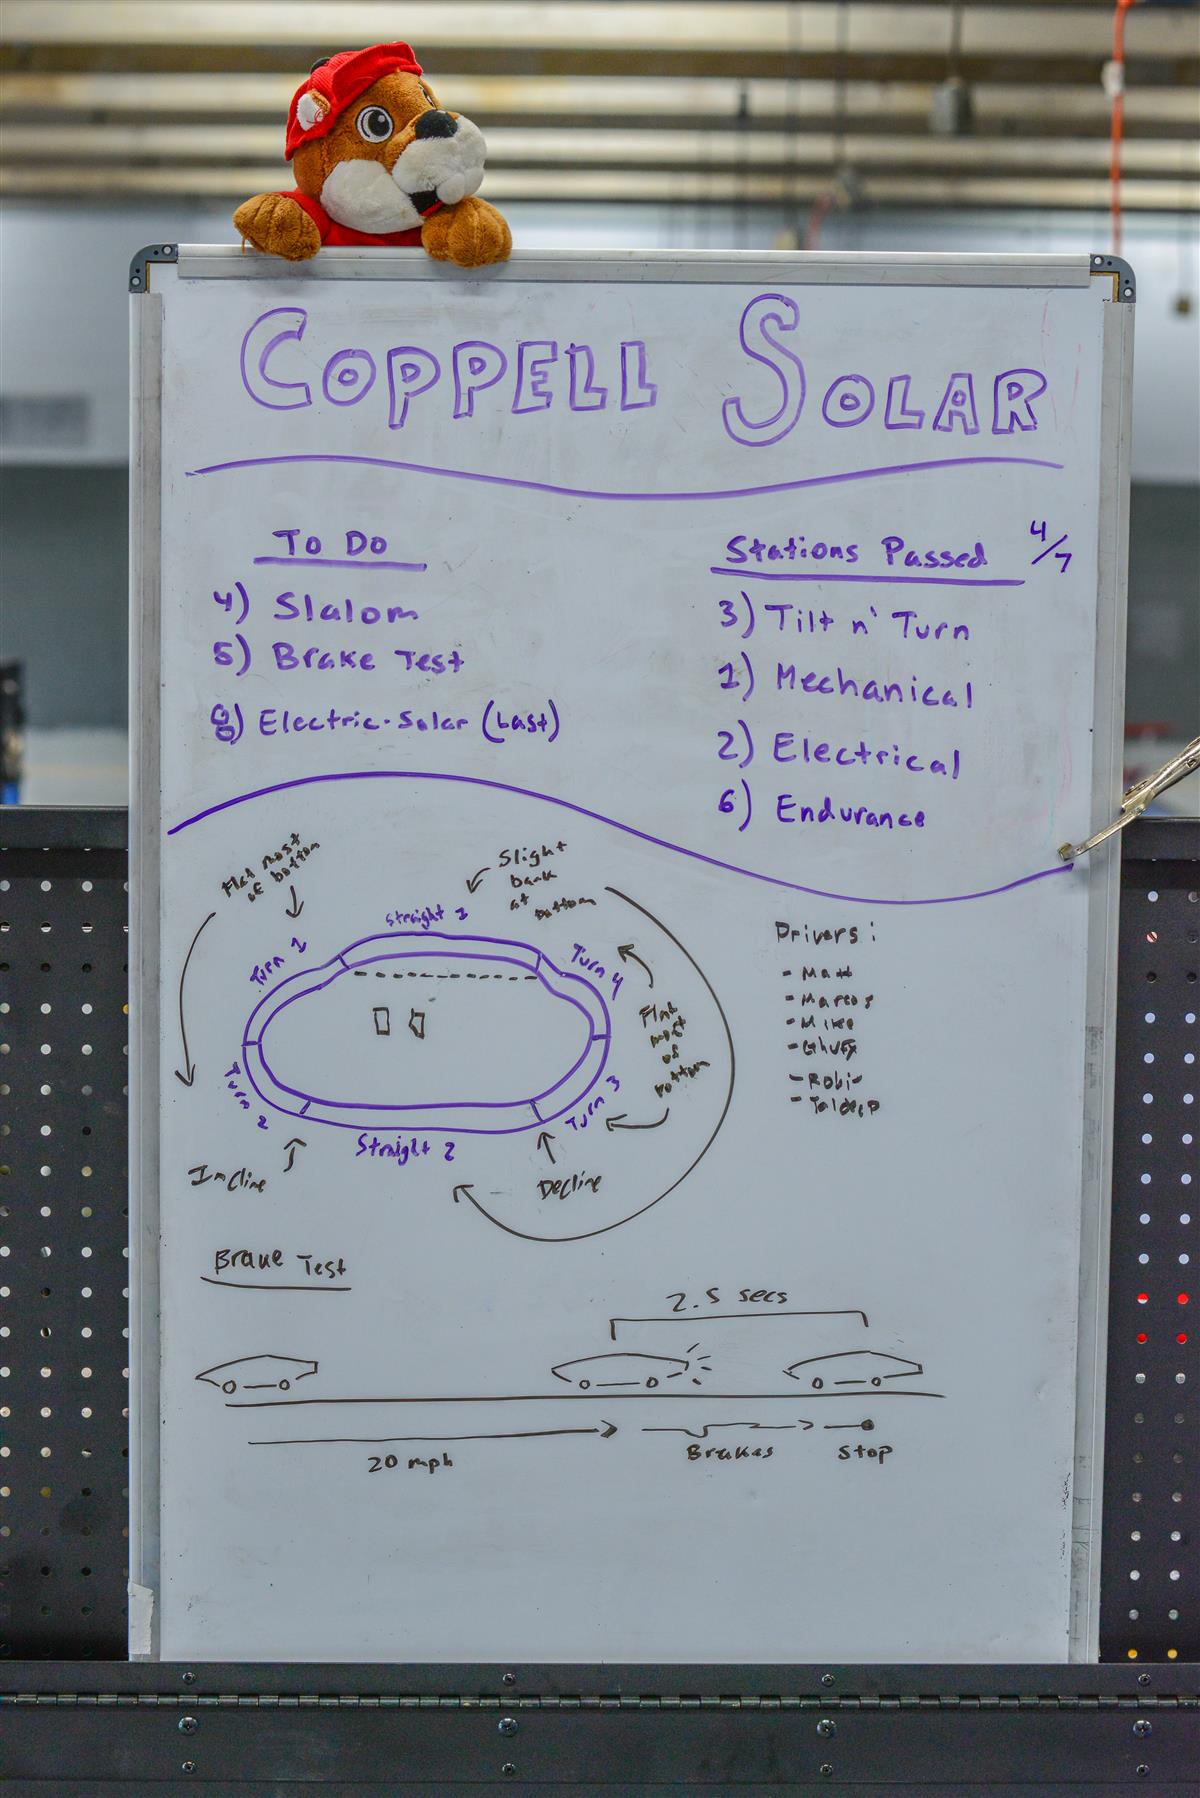 COPPELL SOLAR
To Do
4) Slalom
5) Brake Test
8) Electric-Solar (Last)
Stations Passed 4/7
3) Tilt n' Turn
1) Mechanical
2) Electrical
6) Endurance
Flat most
of bottom
Slight
bank
at
bottom
Straight 1
Turn 1
Turn 4
Flat
most
of
bottom
Turn 2
Turn 3
Straight 2
Incline
Decline
Drivers:
- Matt
- Marcos
- Mike
Brake Test
2.5 secs
20 mph
Brakes
Stop